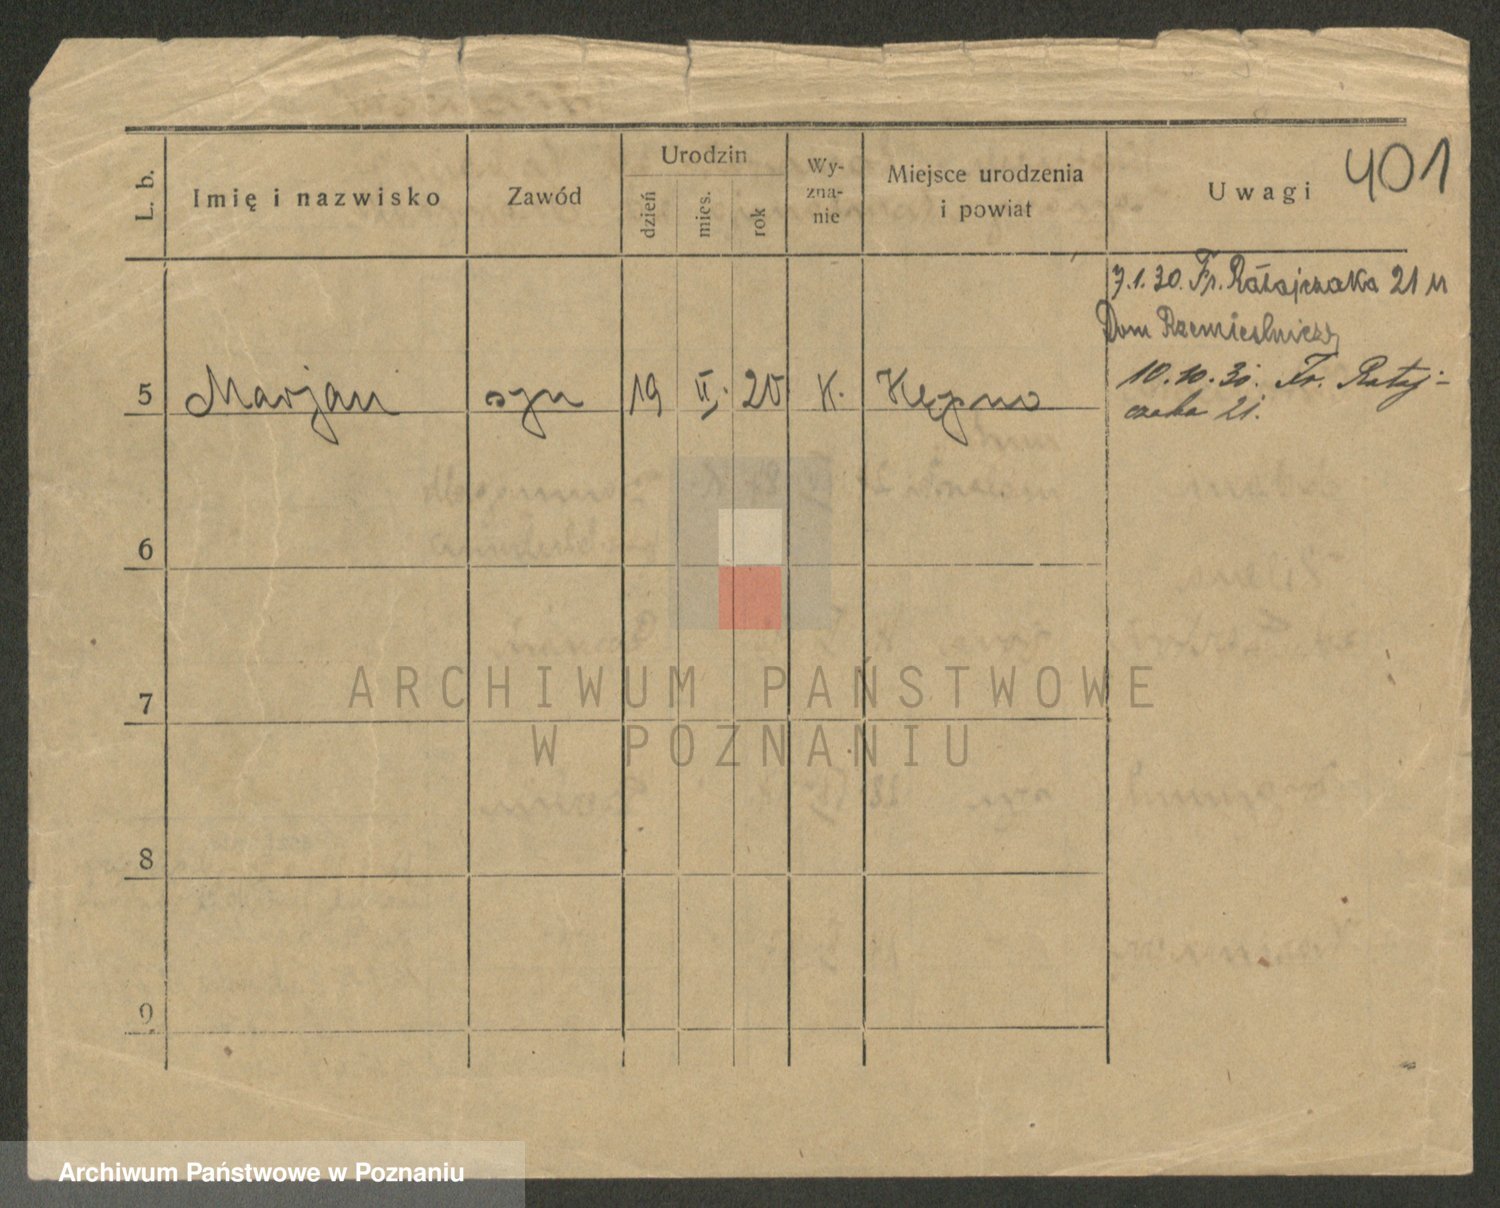 401
L. b. Imię i nazwisko Zawód Urodzin dzień mies. rok Wy-zna-nie Miejsce urodzenia i powiat Uwagi
7.1.30. Fr. Ratajczaka 21
Dom Rzemieślniczy
10.10.30. Fr. Rataj-
czaka 21.
5 Marjan syn 19 II. 20 K. Kępno
6
7
8
9
ARCHIWUM PAŃSTWOWE
W POZNANIU
Archiwum Państwowe w Poznaniu